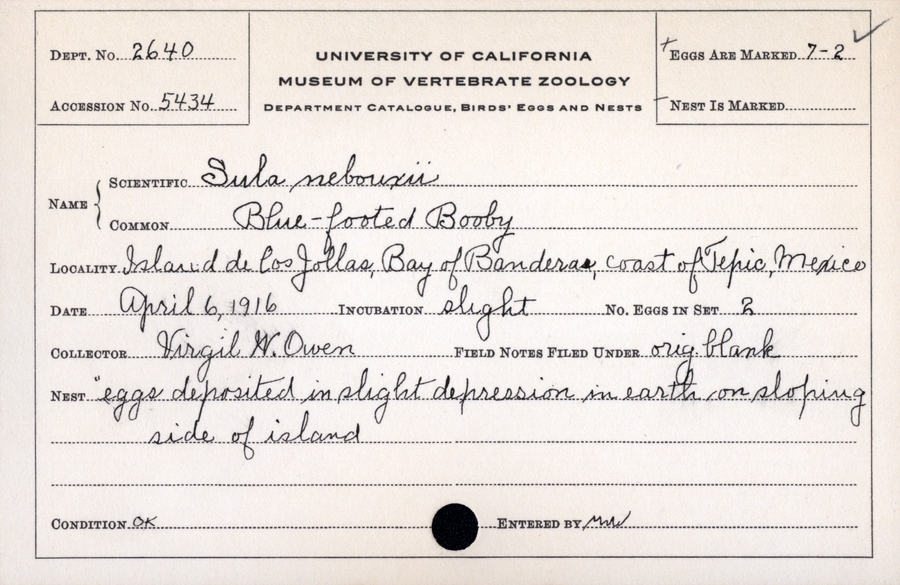 Dept. No. 2640
Accession No. 5434
UNIVERSITY OF CALIFORNIA
MUSEUM OF VERTEBRATE ZOOLOGY
Department Catalogue, Birds' Eggs and Nests
Eggs Are Marked 7-2
Nest Is Marked
Name
Scientific Sula nebouxii
Common Blue-footed Booby
Locality Island de los Jollas, Bay of Banderas, coast of Tepic, Mexico
Date April 6, 1916 Incubation slight No. Eggs in Set 2
Collector Virgil W. Owen Field Notes Filed Under orig. blank
Nest "eggs deposited in slight depression in earth on sloping
side of island
Condition OK Entered by